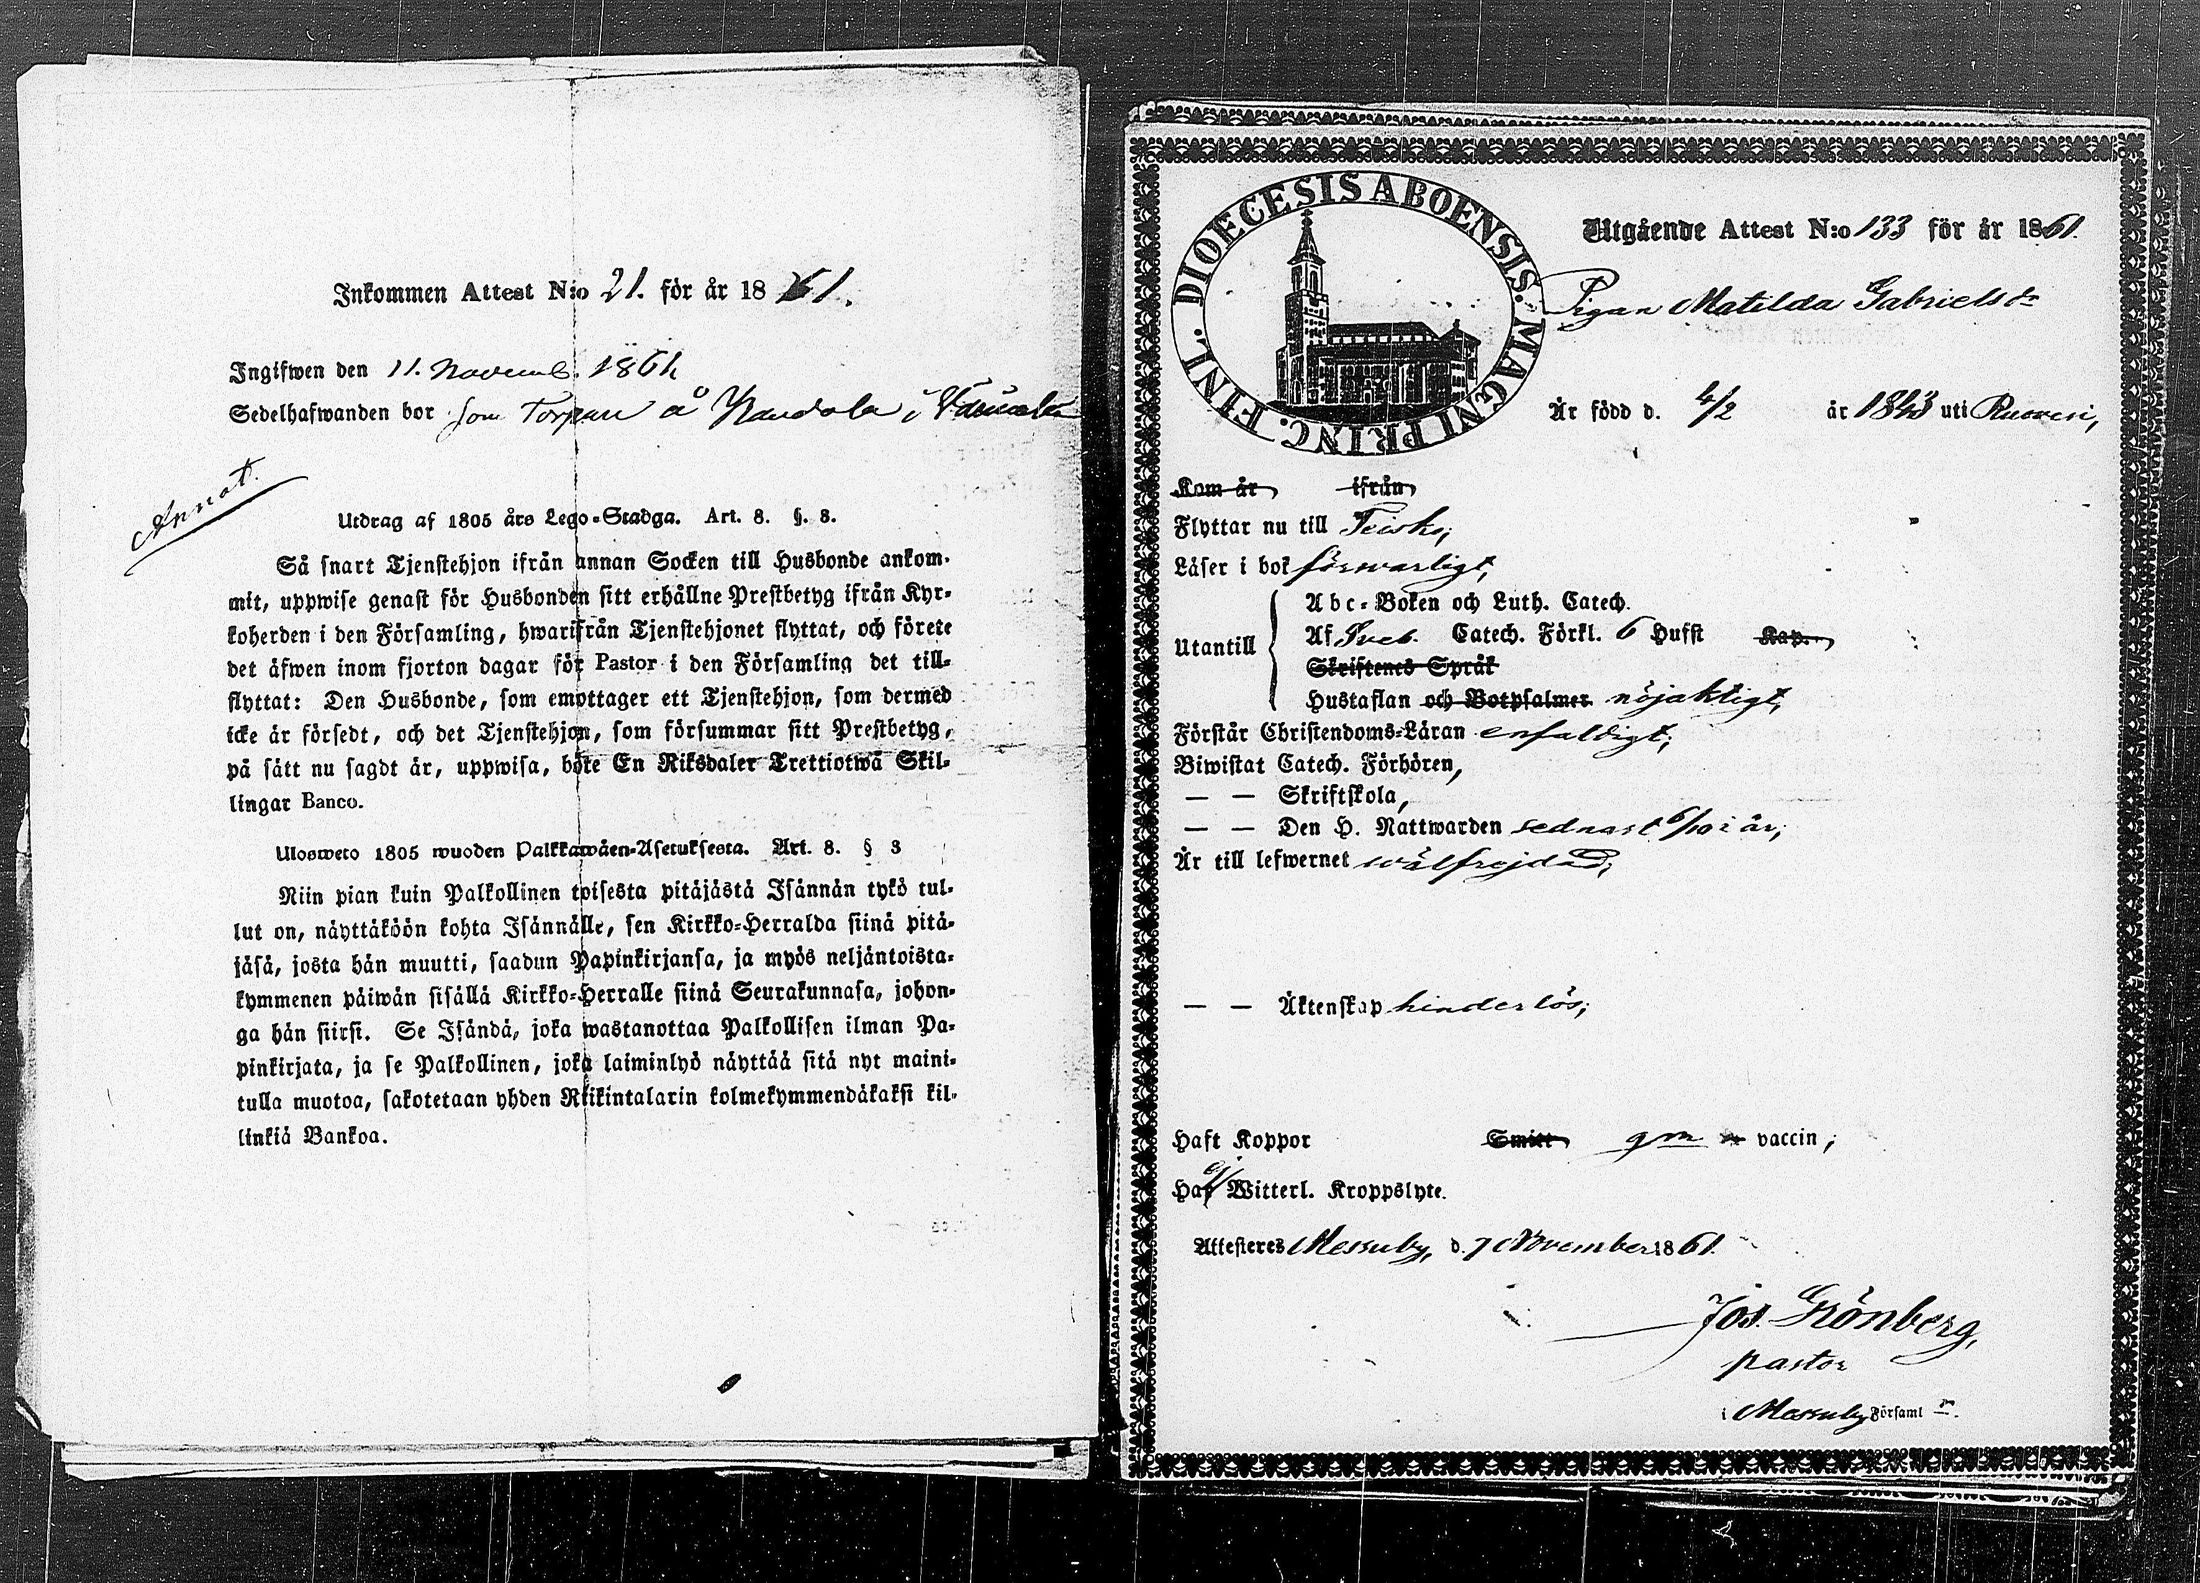 Inkommen Attest N:o 21. för år 1861.
Ingifwen den 11. Novemb. 1861
Sedelhafwanden bor som Torpare å i
Annot.
Utdrag af 1805 års Lego-Stadga. Art. 8. §. 8.
Så snart Tjenstehjon ifrån annan Socken till Husbonde ankom-
mit, uppwise genast för Husbonden sitt erhållne Prestbetyg ifrån Kyr-
koherden i den Församling, hwarifrån Tjenstehjonet flyttat, och förete
det äfwen inom fjorton dagar för Pastor i den Församling det till-
flyttat: Den Husbonde, som emottager ett Tjenstehjon, som dermed
icke är försedt, och det Tjenstehjon, som försummar sitt Prestbetyg,
på sätt nu sagdt är, uppwisa, böte En Riksdaler Trettiotwå Skil-
lingar Banco.
Ulosweto 1805 wuoden Palkkawäen-Asetuksesta. Art. 8. § 8
Niin pian kuin Palkollinen toisesta pitäjästä Isännän tykö tul-
lut on, näyttäköön kohta Isännälle, sen Kirkko-Herralda siinä pitä-
jäsä, josta hän muutti, saadun Papinkirjansa, ja myös neljäntoista-
kymmenen päiwän sisällä Kirkko-Herralle siinä Seurakunnasa, johon-
ga hän siirsi. Se Isändä, joka wastanottaa Palkollisen ilman Pa-
pinkirjata, ja se Palkollinen, joka laiminlyö näyttää sitä nyt maini-
tulla muotoa, sakotetaan yhden Riikintalarin kolmekymmendäkaksi kil-
linkiä Bankoa.
DIOECESIS ABOENSIS. MAGNI PRINC. FINL.
Utgående Attest N:o 133 för år 1861.
Pigan Matilda Gabrielsdr
Är född d. 4/2 år 1843 uti Ruovesi,
Kom år ifrån
Flyttar nu till Teisko,
Läser i bok förswarligt,
Abc-Boken och Luth. Catech.
Utantill Af Sveb. Catech. Förkl. 6 Hufst Kap.
Skriftenes Språk
Hustaflan och Botpsalmer nöjaktigt,
Förstår Christendoms-Läran enfaldigt,
Biwistat Catech. Förhören,
— — Skriftskola,
— — Den H. Nattwarden sednast 6/10 i år,
Är till lefwernet wälfrejdad,
— — Äktenskap hinderlös,
Haft Koppor Smitt gm vaccin,
Haf ej Witterl. Kroppslyte.
Attesteres Messuby, d. 7 November 1861.
Jos. Grönberg,
pastor
i Messuby Församl n.